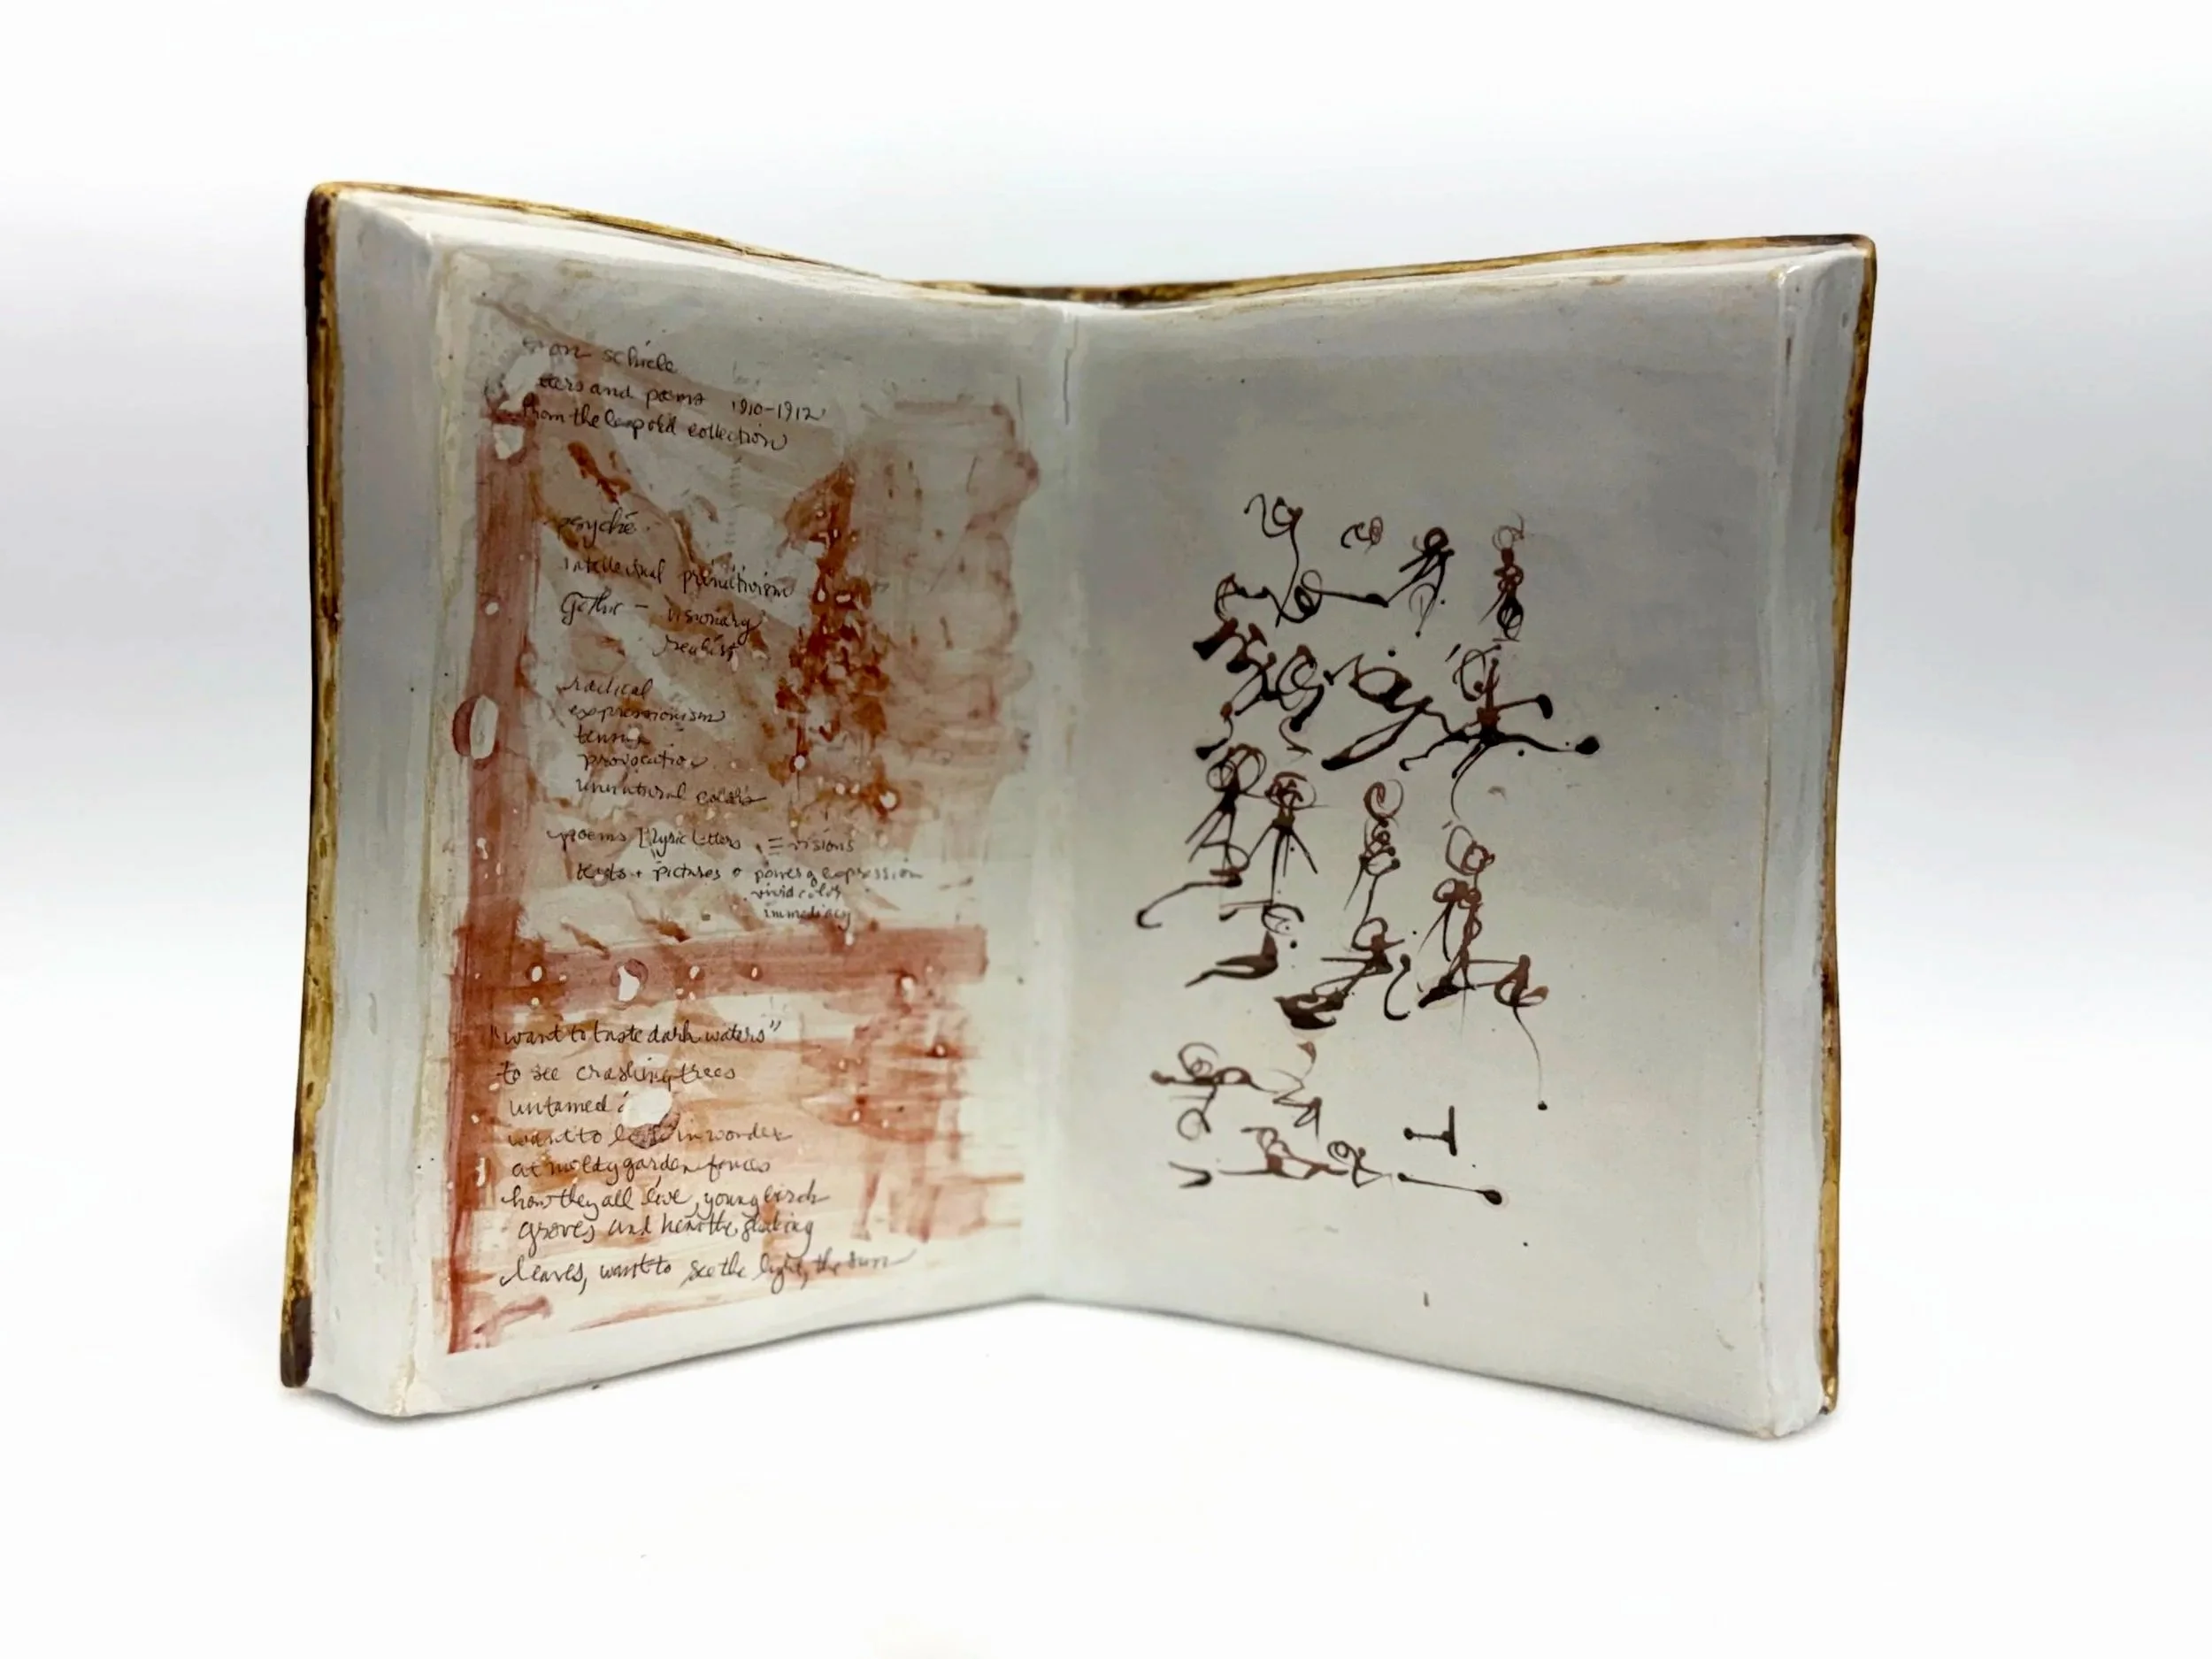 schiele
and poems 1910-1912
from the leopold collection
psyche
intellectual primitivism
Gothic - visionary
realist
radical
expressionism
tension
provocation
unnatural colors
poems lyric letters = visions
texts + pictures powers of expression
vivid color
immediacy
"want to taste dark waters"
to see crashing trees
untamed
want to look in wonder
at moldy garden fences
how they all live, young birch
groves and hear the shaking
leaves, want to see the light, the sun